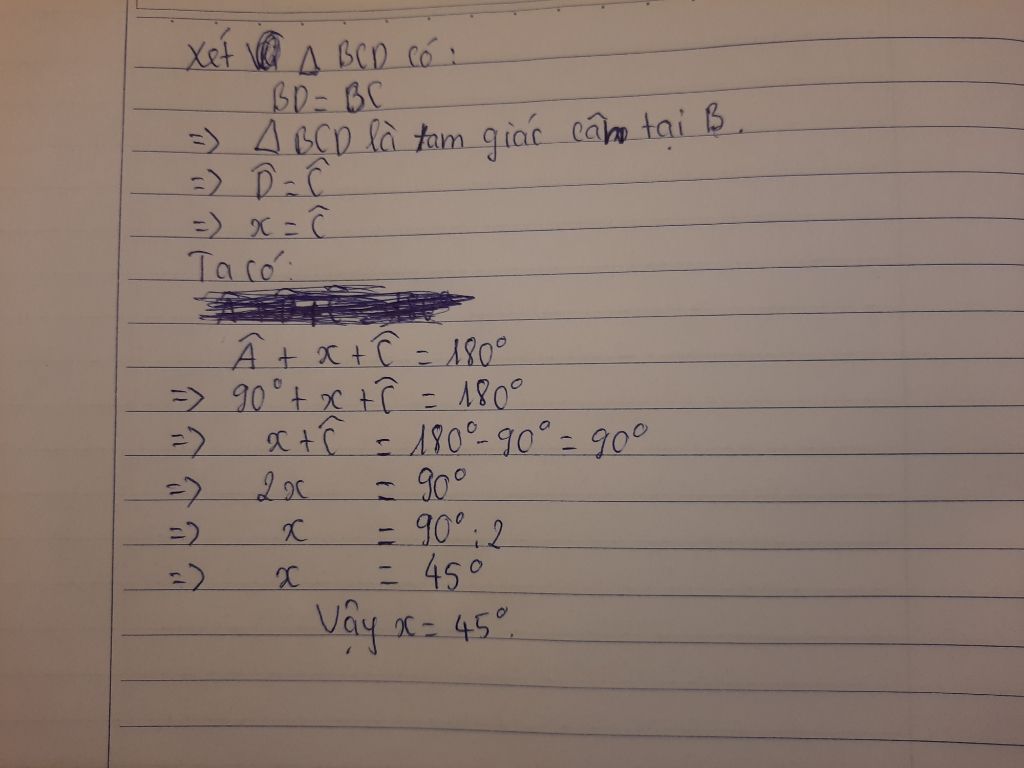 Xét Δ BCD có:
BD = BC
=> Δ BCD là tam giác cân tại B.
=> D̂ = Ĉ
=> x = Ĉ
Ta có:
Â + x + Ĉ = 180°
=> 90° + x + Ĉ = 180°
=> x + Ĉ = 180° - 90° = 90°
=> 2x = 90°
=> x = 90° : 2
=> x = 45°
Vậy x = 45°.